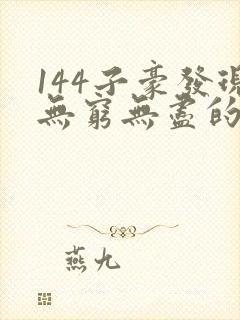 144子豪發現
無窮無盡的
燕九